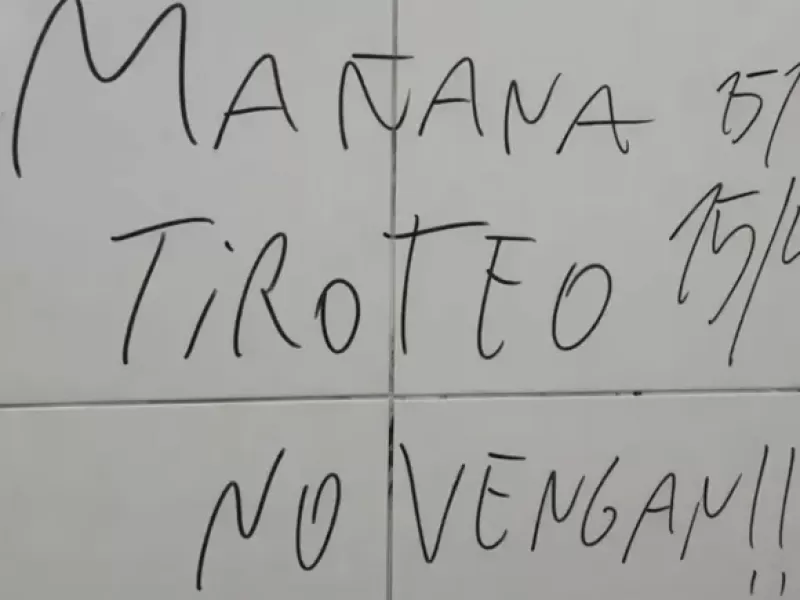 MAÑANA
TIROTEO 15/
NO VENGAN!!